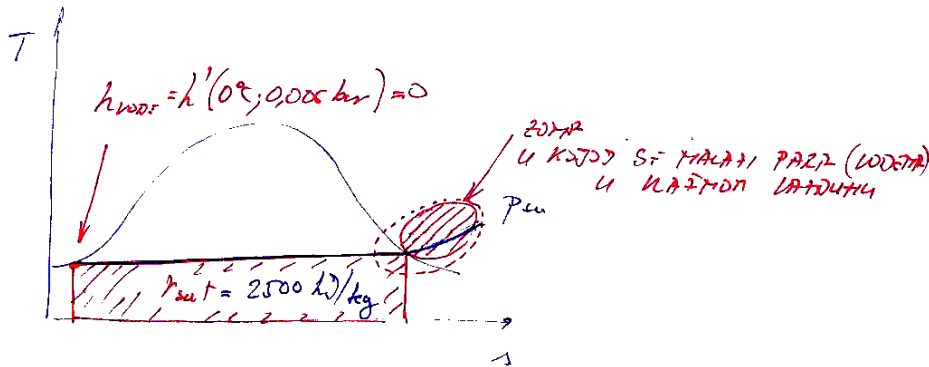 T
h vode = h'(0°C; 0,006 bar) = 0
ZONA
U KOJOJ SE NALAZI PARA (VODENA)
U VLAŽNOM VAZDUHU
r sat = 2500 kJ/kg
s